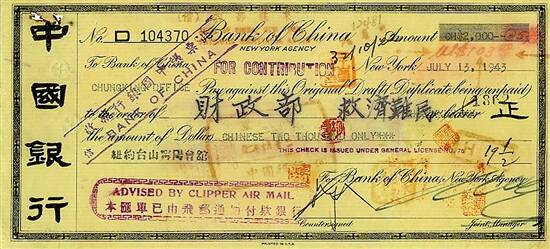 中國銀行
No. D 104370
Bank of China
NEW YORK AGENCY
12481
Amount CH$2,000
To Bank of China
FOR CONTRIBUTION
New York JULY 13, 1943
CHUNGKING OFFICE
BANK OF CHINA
Pay against this Original Draft (Duplicate being unpaid)
to the order of 財政部 救濟難民 or bearer 正
The amount of Dollars CHINESE TWO THOUSAND ONLY***
THIS CHECK IS ISSUED UNDER GENERAL LICENSE No. 75
紐約台山寧陽會館
19 1/2
For Bank of China, New York Agency
ADVISED BY CLIPPER AIR MAIL
本匯票已由飛郵通知付款銀行
Countersigned
Joint Manager
PRINTED IN U.S.A.